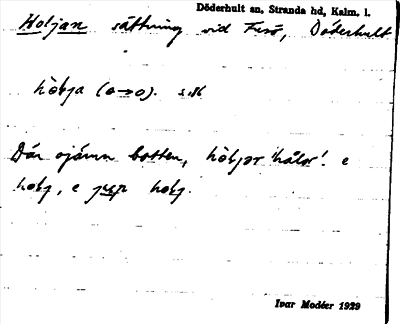 Döderhult sn, Stranda hd, Kalm. l.
Holjan sättning vid Furö, Döderhult
hòlja (o→o). s.sk
Där ojämn botten, hòljər 'hålor'. e
holj, e jup holj.
Ivar Modéer 1929